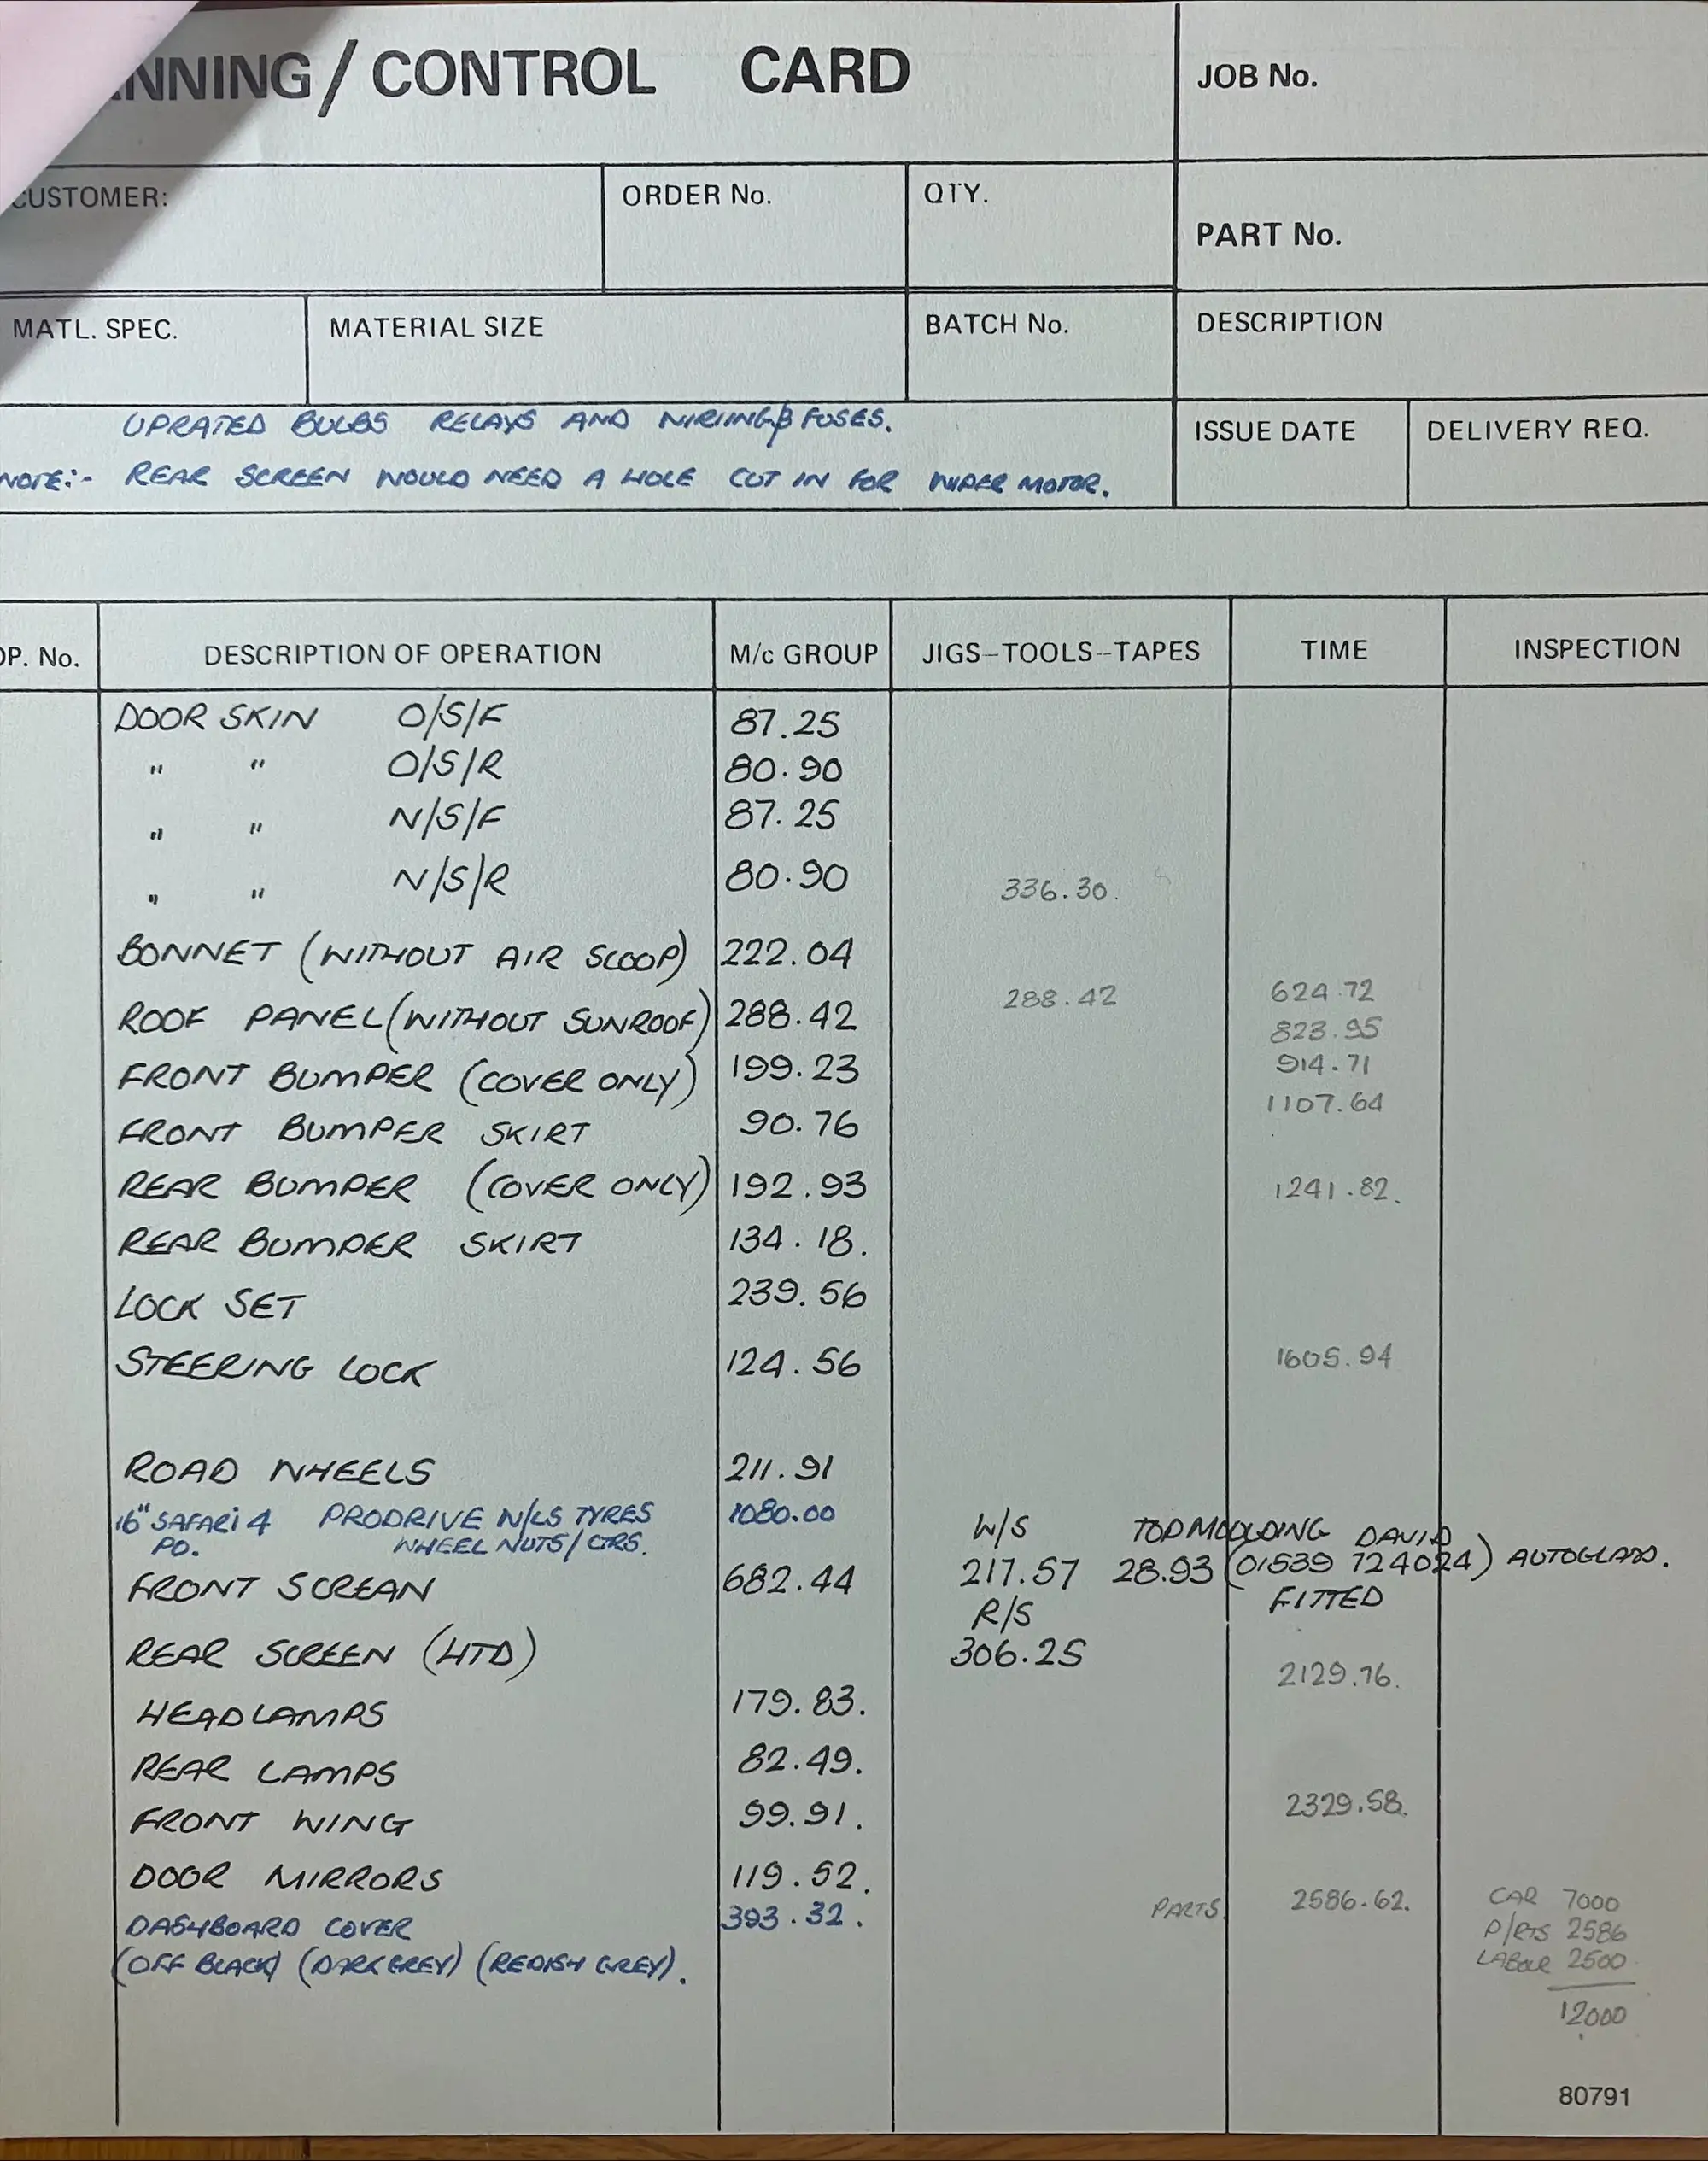 NNING/CONTROL CARD
JOB No.
CUSTOMER:
ORDER No.
QTY.
PART No.
MATL. SPEC.
MATERIAL SIZE
BATCH No.
DESCRIPTION
UPRATED BULBS RELAYS AND WIRING & FUSES.
ISSUE DATE
DELIVERY REQ.
NOTE:- REAR SCREEN WOULD NEED A HOLE CUT IN FOR WIPER MOTOR.
OP. No. DESCRIPTION OF OPERATION M/c GROUP JIGS-TOOLS-TAPES TIME INSPECTION
DOOR SKIN O/S/F 87.25
" " O/S/R 80.90
" " N/S/F 87.25
" " N/S/R 80.90 336.30.
BONNET (WITHOUT AIR SCOOP) 222.04
ROOF PANEL (WITHOUT SUNROOF) 288.42 288.42 624.72
823.95
FRONT BUMPER (COVER ONLY) 199.23 914.71
1107.64
FRONT BUMPER SKIRT 90.76
REAR BUMPER (COVER ONLY) 192.93 1241.82.
REAR BUMPER SKIRT 134.18.
LOCK SET 239.56
STEERING LOCK 124.56 1605.94
ROAD WHEELS 211.91
16" SAFARi 4 PRODRIVE W/LS TYRES 1080.00 W/S TOP MOULDING DAVID
PO. WHEEL NUTS/CTRS.
FRONT SCREAN 682.44 217.57 28.93 (01539 724024) AUTOGLASS.
R/S FITTED
REAR SCREEN (HTD) 306.25 2129.76.
HEADLAMPS 179.83.
REAR LAMPS 82.49.
FRONT WING 99.91. 2329.58.
DOOR MIRRORS 119.52.
PARTS. 2586.62. CAR 7000
DASHBOARD COVER 393.32. P/RTS 2586
(OFF BLACK) (DARK GREY) (REDISH GREY). LABOUR 2500
12000
80791